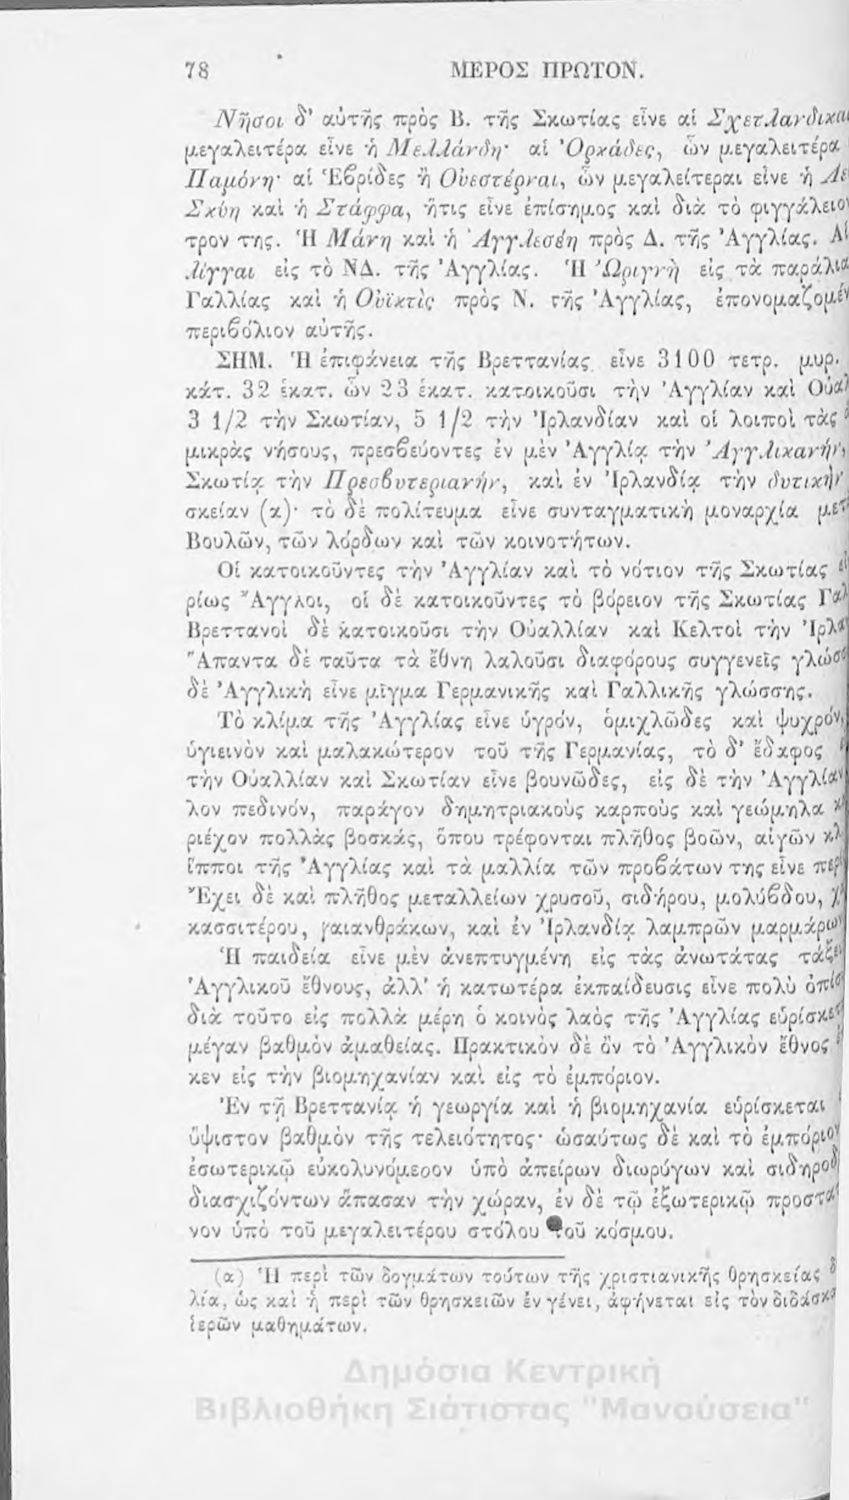 78 ΜΕΡΟΣ ΠΡΩΤΟΝ.
Νῆσοι δ' αὐτῆς πρὸς Β. τῆς Σκωτίας εἶνε αἱ Σχετλανδικαὶ
μεγαλειτέρα εἶνε ἡ Μελλάνδη· αἱ Ὀρκάδες, ὧν μεγαλειτέρα
Παμόνη· αἱ Ἑβρίδες ἢ Οὐεστέρναι, ὧν μεγαλείτεραι εἶνε ἡ
Σκύη καὶ ἡ Στάφφα, ἥτις εἶνε ἐπίσημος καὶ διὰ τὸ φιγγάλειον
τρον της. Ἡ Μάνη καὶ ἡ Ἀγγλεσέη πρὸς Δ. τῆς Ἀγγλίας. Αἱ
λίγγαι εἰς τὸ ΝΔ. τῆς Ἀγγλίας. Ἡ Ὠριγνὴ εἰς τὰ παράλια
Γαλλίας καὶ ἡ Οὐϊκτὶς πρὸς Ν. τῆς Ἀγγλίας, ἐπονομαζομέν
περιβόλιον αὐτῆς.
ΣΗΜ. Ἡ ἐπιφάνεια τῆς Βρεττανίας εἶνε 3100 τετρ. μυρ.
κάτ. 32 ἑκατ. ὧν 23 ἑκατ. κατοικοῦσι τὴν Ἀγγλίαν καὶ Οὐαλ
3 1/2 τὴν Σκωτίαν, 5 1/2 τὴν Ἰρλανδίαν καὶ οἱ λοιποὶ τὰς
μικρὰς νήσους, πρεσβεύοντες ἐν μὲν Ἀγγλίᾳ τὴν Ἀγγλικανήν,
Σκωτίᾳ τὴν Πρεσβυτεριανήν, καὶ ἐν Ἰρλανδίᾳ τὴν δυτικὴν
σκείαν (α)· τὸ δὲ πολίτευμα εἶνε συνταγματικὴ μοναρχία μετ
Βουλῶν, τῶν λόρδων καὶ τῶν κοινοτήτων.
Οἱ κατοικοῦντες τὴν Ἀγγλίαν καὶ τὸ νότιον τῆς Σκωτίας εἶ
ρίως Ἄγγλοι, οἱ δὲ κατοικοῦντες τὸ βόρειον τῆς Σκωτίας Γαλ
Βρεττανοὶ δὲ κατοικοῦσι τὴν Οὐαλλίαν καὶ Κελτοὶ τὴν Ἰρλα
Ἅπαντα δὲ ταῦτα τὰ ἔθνη λαλοῦσι διαφόρους συγγενεῖς γλώσσ
δὲ Ἀγγλικὴ εἶνε μῖγμα Γερμανικῆς καὶ Γαλλικῆς γλώσσης.
Τὸ κλίμα τῆς Ἀγγλίας εἶνε ὑγρόν, ὁμιχλῶδες καὶ ψυχρόν,
ὑγιεινὸν καὶ μαλακώτερον τοῦ τῆς Γερμανίας, τὸ δ' ἔδαφος
τὴν Οὐαλλίαν καὶ Σκωτίαν εἶνε βουνῶδες, εἰς δὲ τὴν Ἀγγλίαν
λον πεδινόν, παράγον δημητριακοὺς καρποὺς καὶ γεώμηλα
ριέχον πολλὰς βοσκάς, ὅπου τρέφονται πλῆθος βοῶν, αἰγῶν κλ
ἵπποι τῆς Ἀγγλίας καὶ τὰ μαλλία τῶν προβάτων της εἶνε περ
Ἔχει δὲ καὶ πλῆθος μεταλλείων χρυσοῦ, σιδήρου, μολύβδου, χ
κασσιτέρου, γαιανθράκων, καὶ ἐν Ἰρλανδίᾳ λαμπρῶν μαρμάρων
Ἡ παιδεία εἶνε μὲν ἀνεπτυγμένη εἰς τὰς ἀνωτάτας τάξει
Ἀγγλικοῦ ἔθνους, ἀλλ' ἡ κατωτέρα ἐκπαίδευσις εἶνε πολὺ ὀπίσ
διὰ τοῦτο εἰς πολλὰ μέρη ὁ κοινὸς λαὸς τῆς Ἀγγλίας εὑρίσκετ
μέγαν βαθμὸν ἀμαθείας. Πρακτικὸν δὲ ὂν τὸ Ἀγγλικὸν ἔθνος
κεν εἰς τὴν βιομηχανίαν καὶ εἰς τὸ ἐμπόριον.
Ἐν τῇ Βρεττανίᾳ ἡ γεωργία καὶ ἡ βιομηχανία εὑρίσκεται
ὕψιστον βαθμὸν τῆς τελειότητος· ὡσαύτως δὲ καὶ τὸ ἐμπόριον
ἐσωτερικῷ εὐκολυνόμεον ὑπὸ ἀπείρων διωρύγων καὶ σιδηροδ
διασχιζόντων ἅπασαν τὴν χώραν, ἐν δὲ τῷ ἐξωτερικῷ προστα
νον ὑπὸ τοῦ μεγαλειτέρου στόλου τοῦ κόσμου.
(α) Ἡ περὶ τῶν δογμάτων τούτων τῆς χριστιανικῆς θρησκείας δ
λία, ὡς καὶ ἡ περὶ τῶν θρησκειῶν ἐν γένει, ἀφήνεται εἰς τὸν διδάσκα
ἱερῶν μαθημάτων.
Δημόσια Κεντρική
Βιβλιοθήκη Σιάτιστας "Μανούσεια"